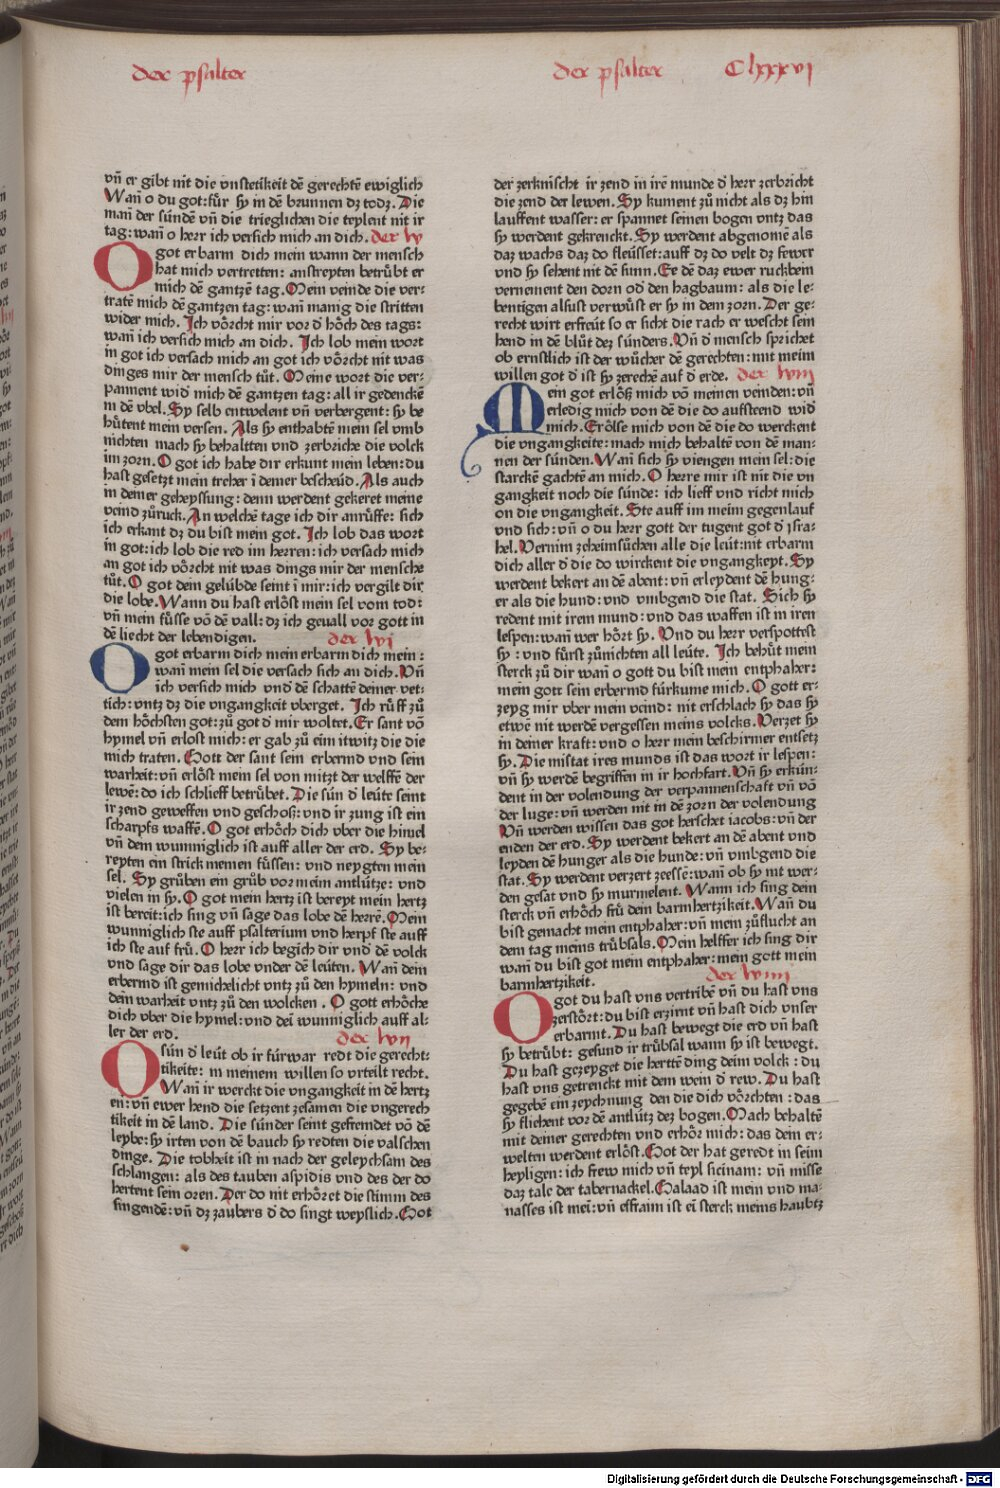 der psalter
der psalter Clxxxvj
vn̄ er gibt nit die vnstetikeit dē gerechtē ewiglich
Wan̄ o du got: fúr sy in dē brunnen dz todz. Die
man̄ der súndē vn̄ die trieglichen die teylent nit ir
tag: wan̄ o herr ich versich mich an dich. der lv
O got erbarm dich mein wann der mensch
hat mich vertretten: anstreyten betrůbt er
mich dē gantzē tag. Mein veinde die ver-
tratē mich dē gantzen tag: wan̄ manig die stritten
wider mich. Ich vörcht mir vor d̄ höch des tags:
wan̄ ich versich mich an dich. Ich lob mein wort
in got ich versach mich an got ich vörcht nit was
dinges mir der mensch tůt. Meine wort die ver-
pannent wid̄ mich dē gantzen tag: all ir gedenckē
in dē vbel. Sy selb entwelent vn̄ verbergent: sy be
hůtent mein versen. Als sy enthabtē mein sel vmb
nichten mach sy behaltten vnd zerbriche die volck
im zorn. O got ich habe dir erkunt mein leben: du
hast gesetzt mein treher ī demer bescheúd. Als auch
in deiner geheyssung: denn werdent gekeret meine
veind zůruck. An welchē tage ich dir anrůffe: sich
ich erkant dz du bist mein got. Ich lob das wort
in got: ich lob die red im herren: ich versach mich
an got ich vörcht nit was dings mir der mensche
tůt. O got dein gelúbde seint ī mir: ich vergilt dir
die lobe. Wann du hast erlöst mein sel vom tod:
vn̄ mein fússe vō dē vall: dz ich geuall vor gott in
dē liecht der lebendigen. der lvj
O got erbarm dich mein erbarm dich mein:
wan̄ mein sel die versach sich an dich. Vn̄
ich versich mich vnd̄ dē schattē deiner vet-
tich: vntz dz die vngangkeit vberget. Ich růff zů
dem höchsten got: zů got d̄ mir woltet. Er sant vō
hymel vn̄ erlost mich: er gab zů eim itwitz die die
mich traten. Gott der sant sein erbermd vnd sein
warheit: vn̄ erlöst mein sel von mitzt der welffē der
lewē: do ich schlieff betrůbet. Die sún d̄ leúte seint
ir zend geweffen vnd geschoß: vnd ir zung ist ein
scharpfs waffē. O got erhöch dich vber die himel
vn̄ dem wunniglich ist auff aller der erd. Sy be-
reyten ein strick meinen fússen: vnd neygten mein
sel. Sy grůben ein grůb vor meim antlútze: vnd
vielen in sy. O got mein hertz ist bereyt mein hertz
ist bereit: ich sing vn̄ sage das lobe dē herrē. Mein
wunniglich ste auff psalterium vnd herpf ste auff
ich ste auf frů. O herr ich begich dir vnd̄ dē volck
vnd sage dir das lobe vnder dē leúten. Wan̄ dein
erbermd ist gemichelicht vntz zů den hymeln: vnd
dein warheit vntz zů den wolcken. O gott erhöche
dich vber die hymel: vnd deī wunniglich auff al-
ler der erd. der lvij
O sún d̄ leút ob ir fúrwar redt die gerecht:
tikeite: in meinem willen so vrteilt recht.
Wan̄ ir werckt die vngangkeit in dē hertz
en: vn̄ ewer hend die setzent zesamen die vngerech
tikeit in dē land. Die súnder seint gefremdet vō dē
leybe: sy irten von dē bauch sy redten die valschen
dinge. Die tobheit ist in nach der geleychsam des
schlangen: als des tauben aspidis vnd des der do
hertent sein oren. Der do nit erhöret die stimm des
singendē: vn̄ dz zaubers d̄ do singt weyslich. Got
der zerknischt ir zend in irē munde d̄ herr zerbricht
die zend der lewen. Sy kument zů nicht als dz hin
lauffent wasser: er spannet seinen bogen vntz das
sy werdent gekrenckt. Sy werdent abgenomē als
daz wachs daz do fleússet: auff dz do velt dz fewer
vnd sy sehent nit dē sunn. Ee dē daz ewer ruckbein
vernement den dorn od̄ den hagbaum: als die le-
bentigen alsust verwúst er sy in dem zorn. Der ge-
recht wirt erfreút so er sicht die rach er wescht sein
hend in dē blůt dez súnders. Vn̄ d̄ mensch sprichet
ob ernstlich ist der wůcher dē gerechten: mit meim
willen got d̄ ist sy zerechē auf d̄ erde. der lviij
Mein got erlöß mich vō meinen veinden: vn̄
erledig mich von dē die do aufsteend wid̄
mich. Erölse mich von dē die do werckent
die vngangkeite: mach mich behaltē von dē man-
nen der súnden. Wan̄ sich sy viengen mein sel: die
starckē gachtē an mich. O herre mir ist nit die vn
gangkeit noch die súnde: ich lieff vnd richt mich
on die vngangkeit. Ste auff im meim gegenlauf
vnd sich: vn̄ o du herr gott der tugent got d̄ isra-
hel. Vernim zeheimsůchen alle die leút: nit erbarm
dich aller d̄ die do wirckent die vngangkeyt. Sy
werdent bekert an dē abent: vn̄ erleydent dē hung-
er als die hund: vnd vmbgend die stat. Sich sy
redent mit irem mund: vnd das waffen ist in iren
lespen: wan̄ wer hört sy. Vnd du herr verspottest
sy: vnd fúrst zůnichten all leúte. Ich behút mein
sterck zů dir wan̄ o gott du bist mein entphaher:
mein gott sein erbermd fúrkume mich. O gott er-
zeyg mir vber mein veind: nit erschlach sy das sy
etwē nit werdē vergessen meins volcks. Verzet sy
in deiner kraft: vnd o herr mein beschirmer entsetz
sy. Die mistat ires munds ist das wort ir lespen:
vn̄ sy werdē begriffen in ir hochfart. Vn̄ sy erkún-
dent in der volendung der verpannenschaft vn̄ vō
der luge: vn̄ werden nit in dē zorn der volendung
Vn̄ werden wissen das got herschet iacobs: vn̄ der
enden der erd. Sy werdent bekert an dē abent vnd
leyden dē hunger als die hunde: vn̄ vmbgend die
stat. Sy werdent verzert zeesse: wan̄ ob sy nit wer-
den gesat vnd sy murmelent. Wann ich sing dein
sterck vn̄ erhöch frů dein barmhertzikeit. Wan̄ du
bist gemacht mein entphaher: vn̄ mein zůflucht an
dem tag meins trúbsals. Mein helffer ich sing dir
wan̄ du bist got mein entphaher: mein gott mein
barmhertzikeit. der lviiij
O got du hast vns vertribē vn̄ du hast vns
zerstört: du bist erzirnt vn̄ hast dich vnser
erbarmt. Du hast bewegt die erd vn̄ hast
sy betrůbt: gesund ir trůbsal wann sy ist bewegt.
Du hast gezeyget die herttē ding deim volck: du
hast vns getrenckt mit dem wein d̄ rew. Du hast
gegebē ein zeychnung den die dich vörchten: das
sy flichent vor dē antlútz dez bogen. Mach behaltē
mit deiner gerechten vnd erhör mich: das dem er-
welten werdent erlöst. Got der hat geredt in seim
heyligen: ich frew mich vn̄ teyl sicinam: vn̄ misse
daz tale der tabernackel. Galaad ist mein vnd ma-
nasses ist meī: vn̄ effraim ist eī sterck meins haubtz
Digitalisierung gefördert durch die Deutsche Forschungsgemeinschaft - DFG